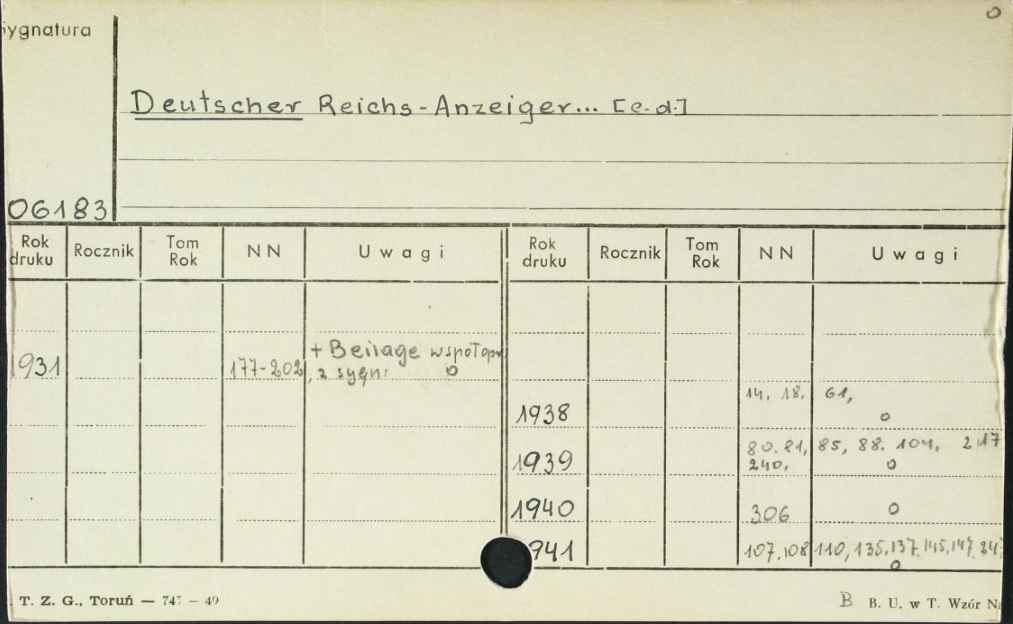 Sygnatura
Deutscher Reichs-Anzeiger... [c.d.]
06183
Rok druku Rocznik Tom Rok NN Uwagi Rok druku Rocznik Tom Rok NN Uwagi
1931 177-202 + Beilage współopr
z sygn: o
1938 14, 18, 61,
o
1939 80. 81, 85, 88. 104, 217
240, o
1940 306 o
1941 107, 108 110, 135, 137, 145, 147,
o
T. Z. G., Toruń — 747 — 49
B B. U. w T. Wzór N